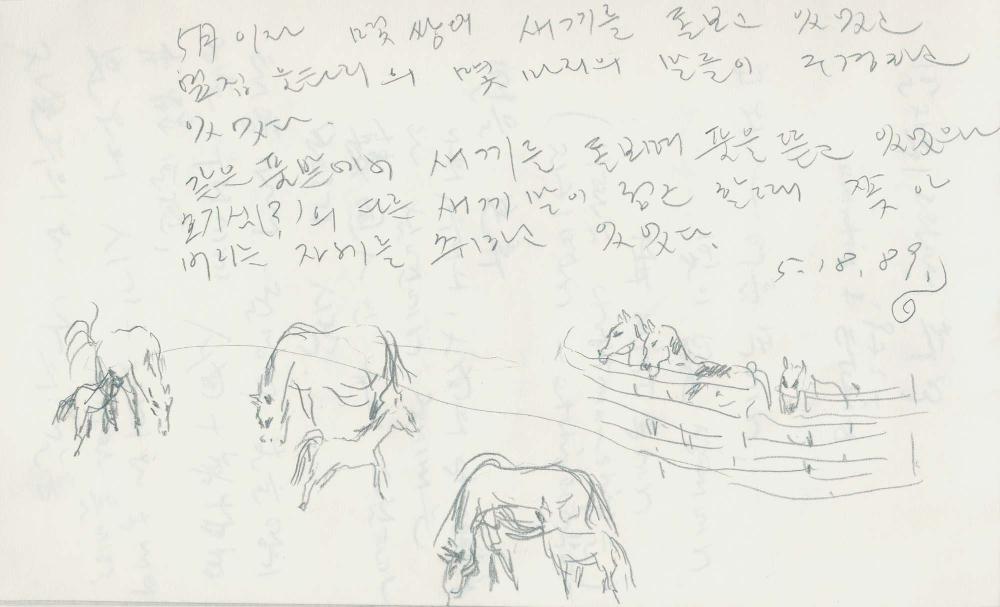 5月이자 몇쌍의 새끼를 돌보고 있었고
옆집 울타리의 몇 마리의 말들이 구경하고
있었다.
같은 풀밭에서 새끼를 돌보며 풀을 뜯고 있었으나
모기씨(?)의 다른 새끼 말이 접근 할때 쫓아
버리는 자세를 취하고 있었다.
5.18.89.